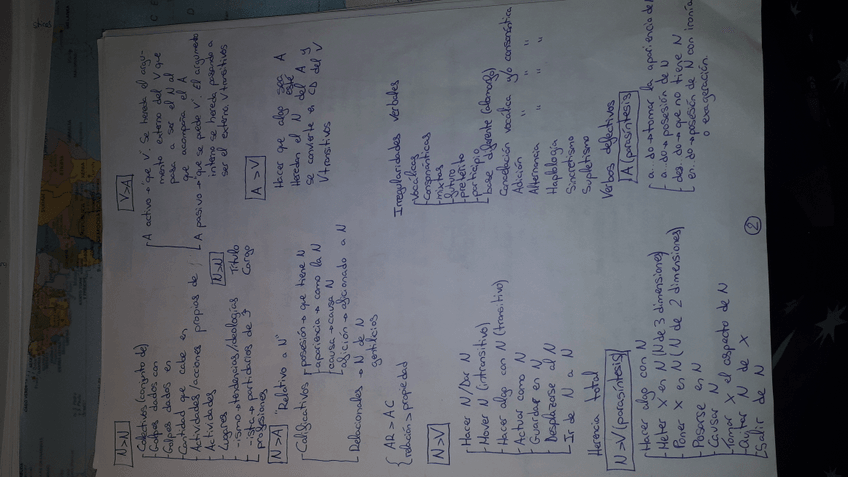 N>N
Colectivos (conjunto de)
Golpes dados con
Golpes dados en
Cantidad que cabe en
Actividades/acciones propias de
Actividades
Lugares
-ismo → tendencias/ideologías
-ista → partidarios de
profesiones
N>N
Título
Cargo
N>A "Relativo a N"
Calificativos
posesión → que tiene N
apariencia → como la N
causa → causa N
afición → aficionado a N
Relacionales → N de N
gentilicios
AR > AC
relación > propiedad
N>V
Hacer N/Dar N
Mover N (intransitivo)
Hacer algo con N (transitivo)
Actuar como N
Guardar en N
Desplazarse al N
Ir de N a N
Herencia total
N>V (parasíntesis)
Hacer algo con N
Meter X en N (N de 3 dimensiones)
Poner X en N (N de 2 dimensiones)
Posarse en N
Causar N
Tomar X el aspecto de N
Quitar N de X
Salir de N
V>A
A activo → que V. Se hereda el argu-
mento externo del V que
pasa a ser el N al
que acompaña el A
A pasivo → que se puede V. El argumento
interno se hereda pasando a
ser el externo. V transitivos
A>V
Hacer que algo sea A
Heredan el N del A y este
se convierte en CD del V
V transitivos
Irregularidades verbales
Vocálicas
Consonánticas
mixtas
futuro
pretérito
participio
base diferente (alomorfo)
Cancelación vocálica y/o consonántica
Adición " "
Alternancia " "
Haplología
Sincretismo
Supletismo
Verbos defectivos
A (parasíntesis)
a. do → tomar la apariencia de N
a. do → posesión de N
des. do → que no tiene N
en. do → posesión de N con ironía
o exageración
2